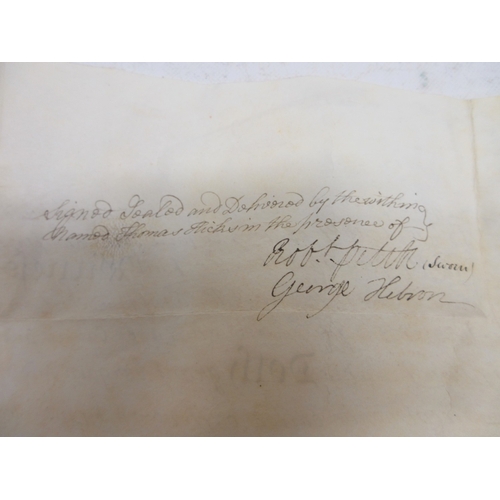 Signed Sealed and Delivered by the within
Named Thomas in the presence of
Robt. (Sworn)
George Hebron